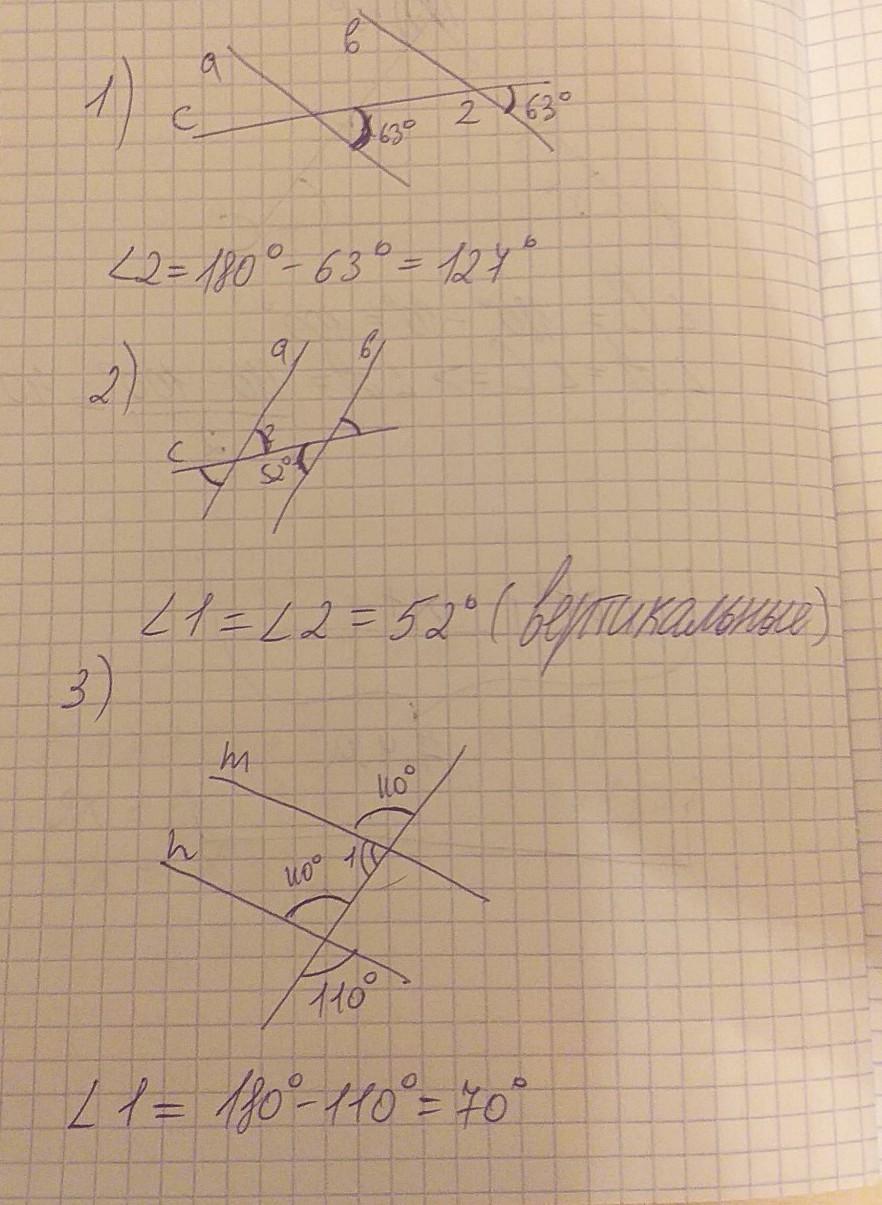 1)
a
b
c
63°
2
63°
∠2 = 180° - 63° = 127°
2)
a
b
c
2
52°
1
∠1 = ∠2 = 52° (вертикальные)
3)
m
110°
n
110°
1
110°
∠1 = 180° - 110° = 70°